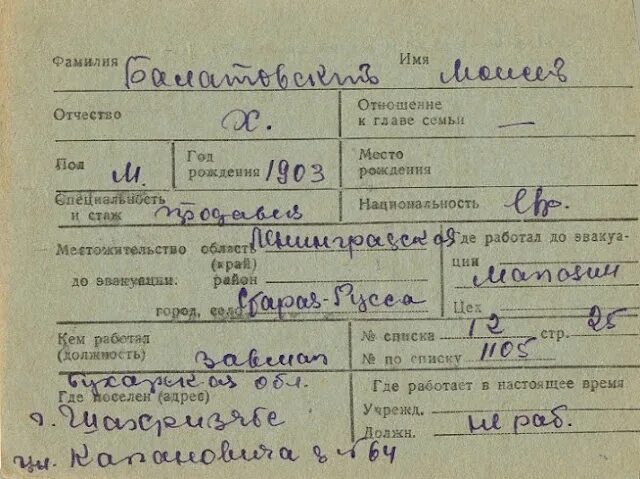 Фамилия Балатовский Имя Моисей
Отчество Х. Отношение к главе семьи —
Пол М. Год рождения 1903 Место рождения
Специальность и стаж продавец Национальность евр.
Местожительство область Ленинградская Где работал до эвакуации
(край)
до эвакуации. район магазин
город, село Старая-Русса Цех
Кем работал (должность) завмаг № списка 12 стр. 25
№ по списку 1105
Бухарская обл. Где работает в настоящее время
Где поселен (адрес)
г. Шахризябс Учрежд. не раб.
Должн.
ул. Кагановича № 64